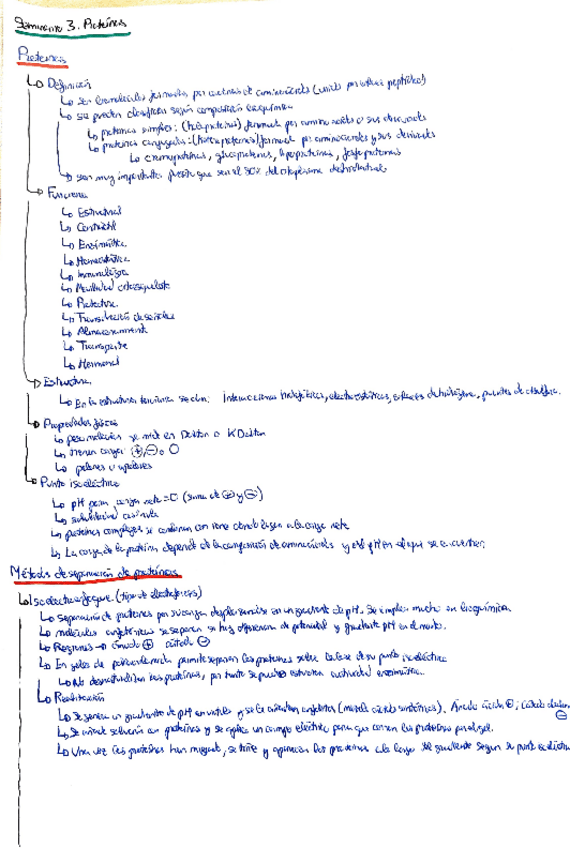 Seminario 3. Proteínas
Proteínas
↳ Definición
↳ Son biomoléculas formadas por cadenas de aminoácidos (unidos por enlace peptídico)
↳ se pueden clasificar según composición bioquímica
↳ proteínas simples: (holoproteínas) formadas por aminoácidos o sus derivados
↳ proteínas conjugadas: (heteroproteínas) formadas por aminoácidos y sus derivados
↳ cromoproteínas, glucoproteínas, lipoproteínas, fosfoproteínas
↳ son muy importantes puesto que son el 80% del citoplasma deshidratado
↳ Funciones
↳ Estructural
↳ Contráctil
↳ Enzimática
↳ Homeostática
↳ Inmunológica
↳ Movilidad citoesqueleto
↳ Protectora
↳ Transducción de señales
↳ Almacenamiento
↳ Transporte
↳ Hormonal
↳ Estructura
↳ En la estructura terciaria se dan: Interacciones hidrofóbicas, electrostáticas, enlaces de hidrógeno, puentes de disulfuro.
↳ Propiedades físicas
↳ peso molecular se mide en Dalton o KDalton
↳ tienen carga ⊕, ⊖ o O
↳ polares o apolares
↳ Punto isoeléctrico
↳ pH para carga neta = 0 (suma de ⊕ y ⊖)
↳ solubilidad
↳ proteínas complejas se combinan con iones dando lugar a la carga neta
↳ La carga de la proteína depende de la composición de aminoácidos y el pH en el que se encuentren
Métodos de separación de proteínas
↳ Isoelectroenfoque (tipo de electroforesis)
↳ Separación de proteínas por su carga desplazándose en un gradiente de pH. Se emplea mucho en bioquímica.
↳ moléculas anfotéricas se separan si hay diferencia de potencial y gradiente pH en el medio.
↳ Regiones → ánodo ⊕ cátodo ⊖
↳ En geles de poliacrilamida permite separar las proteínas sobre la base de su punto isoeléctrico
↳ No desnaturalizan las proteínas, por tanto se puede estudiar actividad enzimática.
↳ Realización
↳ Se genera un gradiente de pH en y se le anfolitos (mezcla ácidos sintéticos). Ánodo ácido ⊕; cátodo ⊖
↳ Se añade solución con proteínas y se aplica un campo eléctrico para que corran las proteínas por el gel.
↳ Una vez las proteínas han migrado, se tiñe y aparecen las proteínas a lo largo del gradiente según su punto isoeléctrico